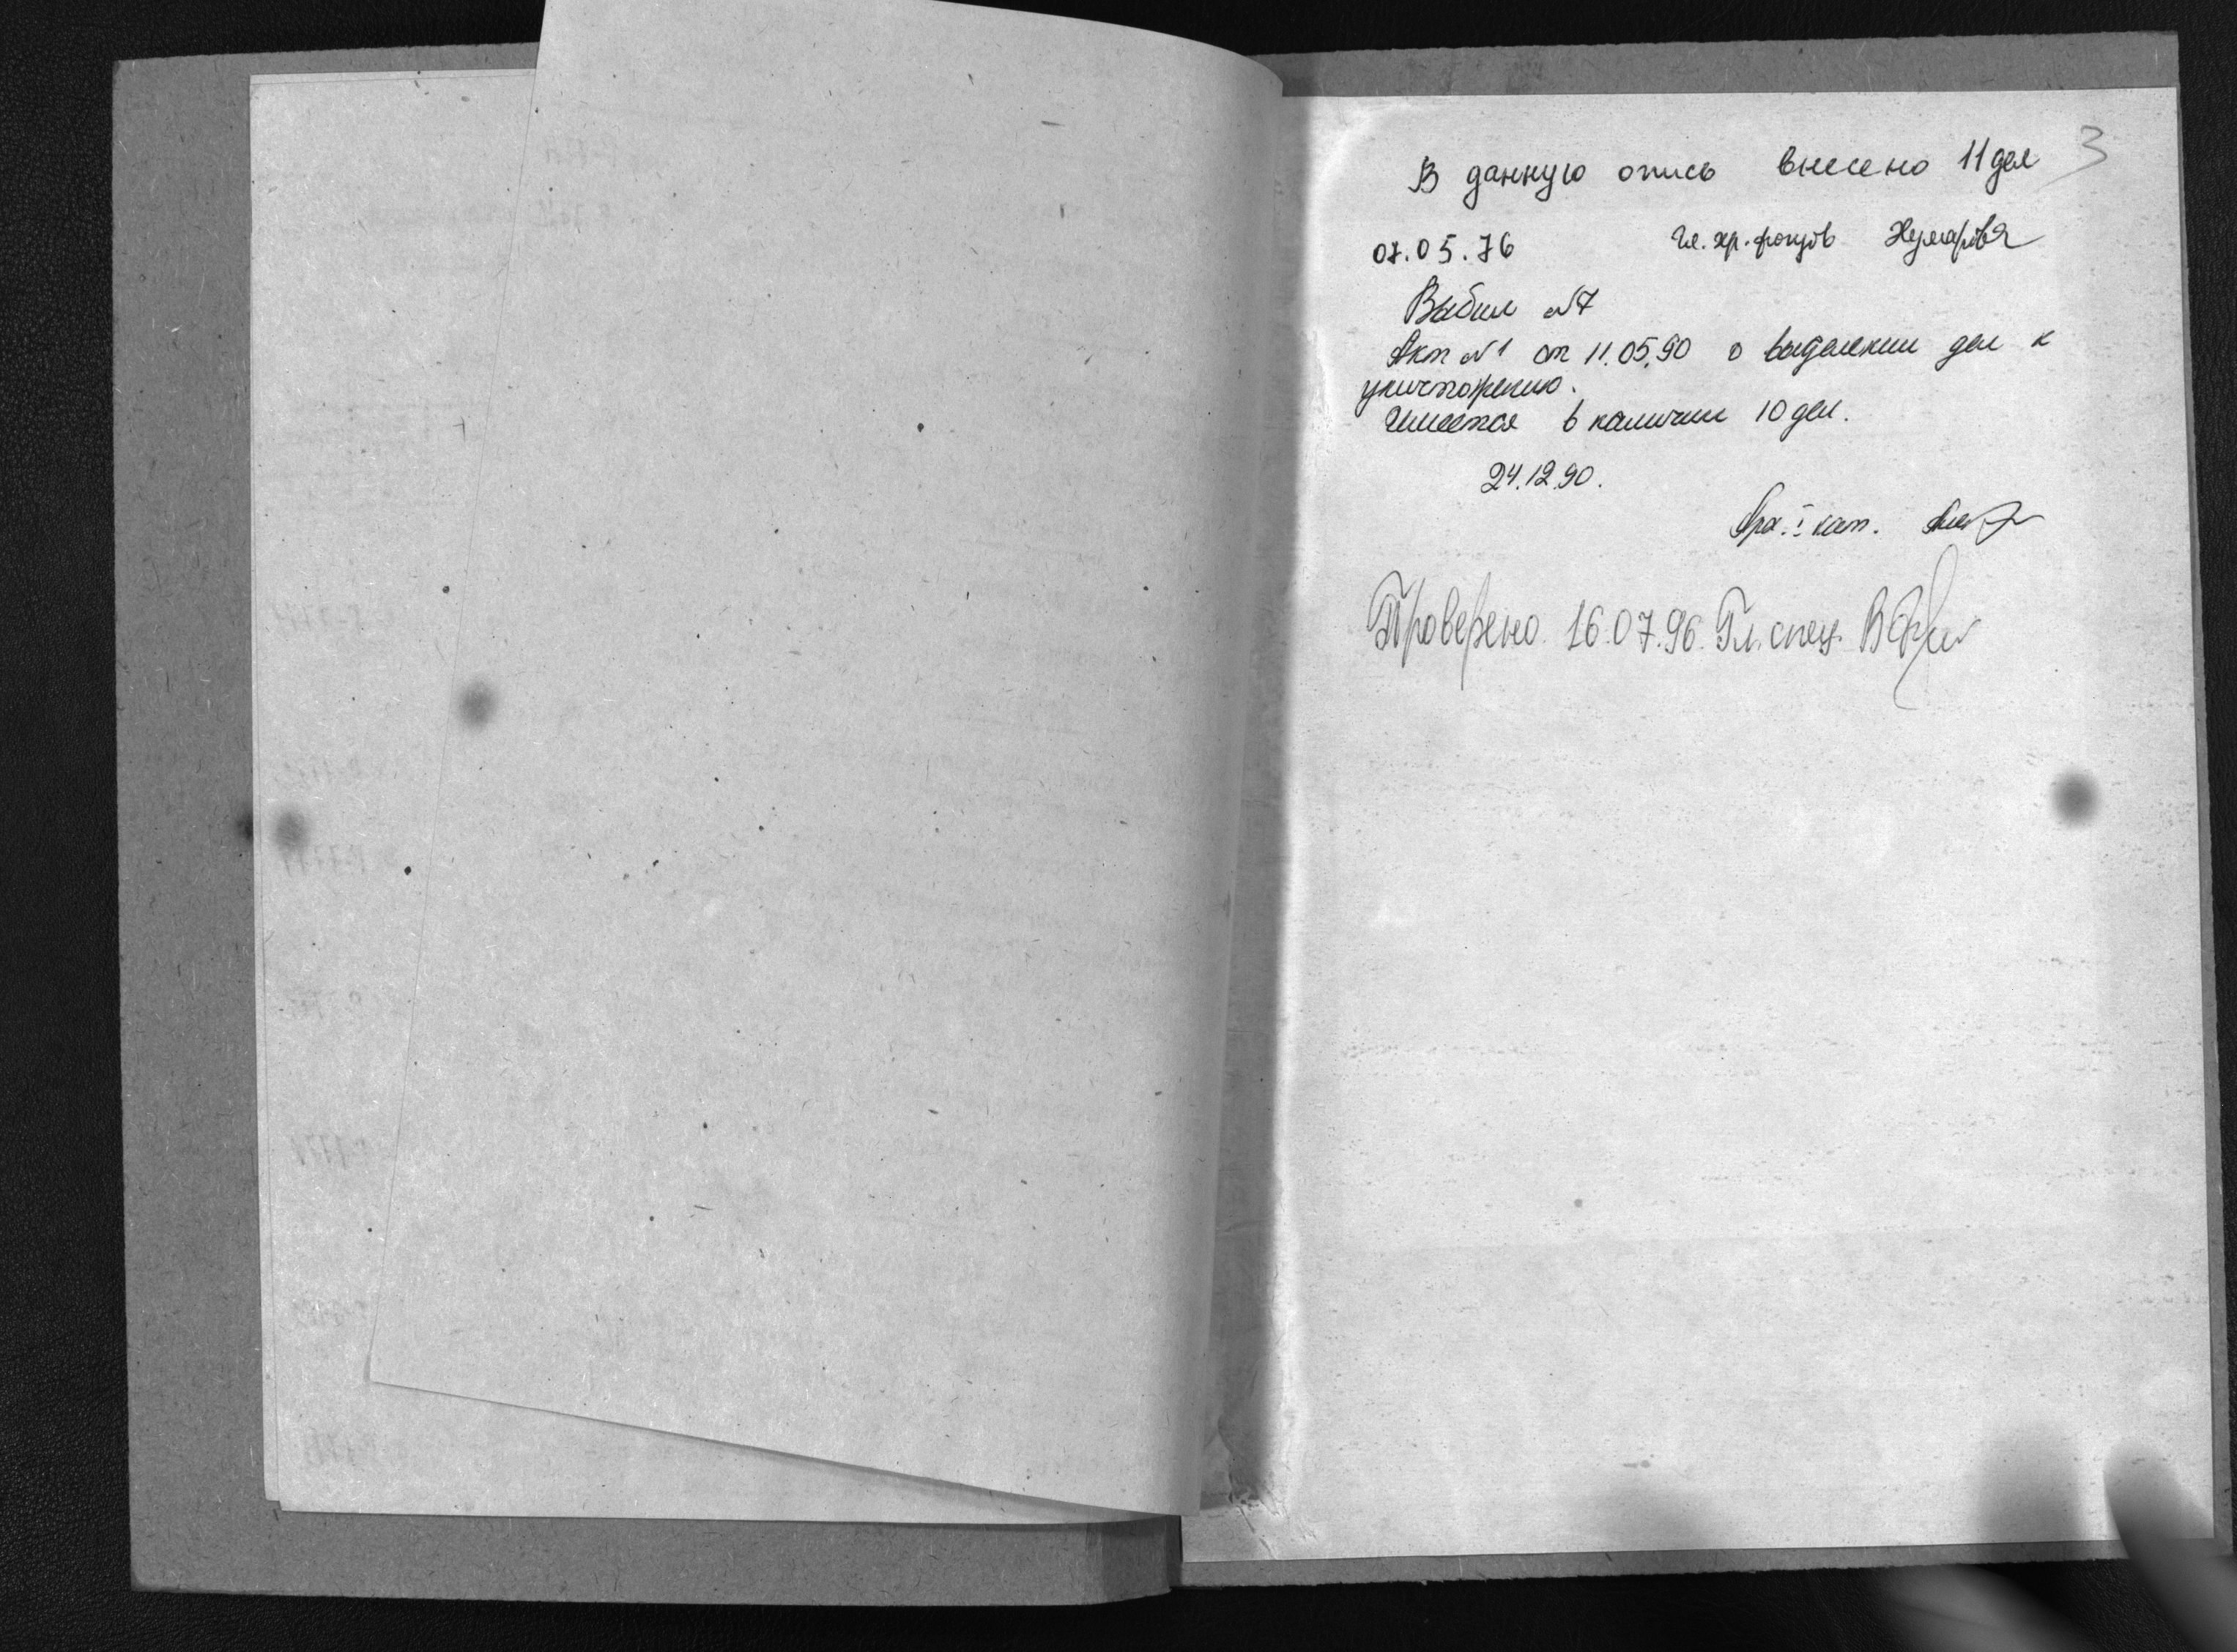 3
В данную опись внесено 11 дел
07.05.76 Гл. хр. фондов
Выбыл №7
Акт №1 от 11.05.90 о выделении дел к
уничтожению.
Имеется в наличии 10 дел.
24.12.90.
Арх. I кат.
Проверено 16.07.96. Гл. спец.